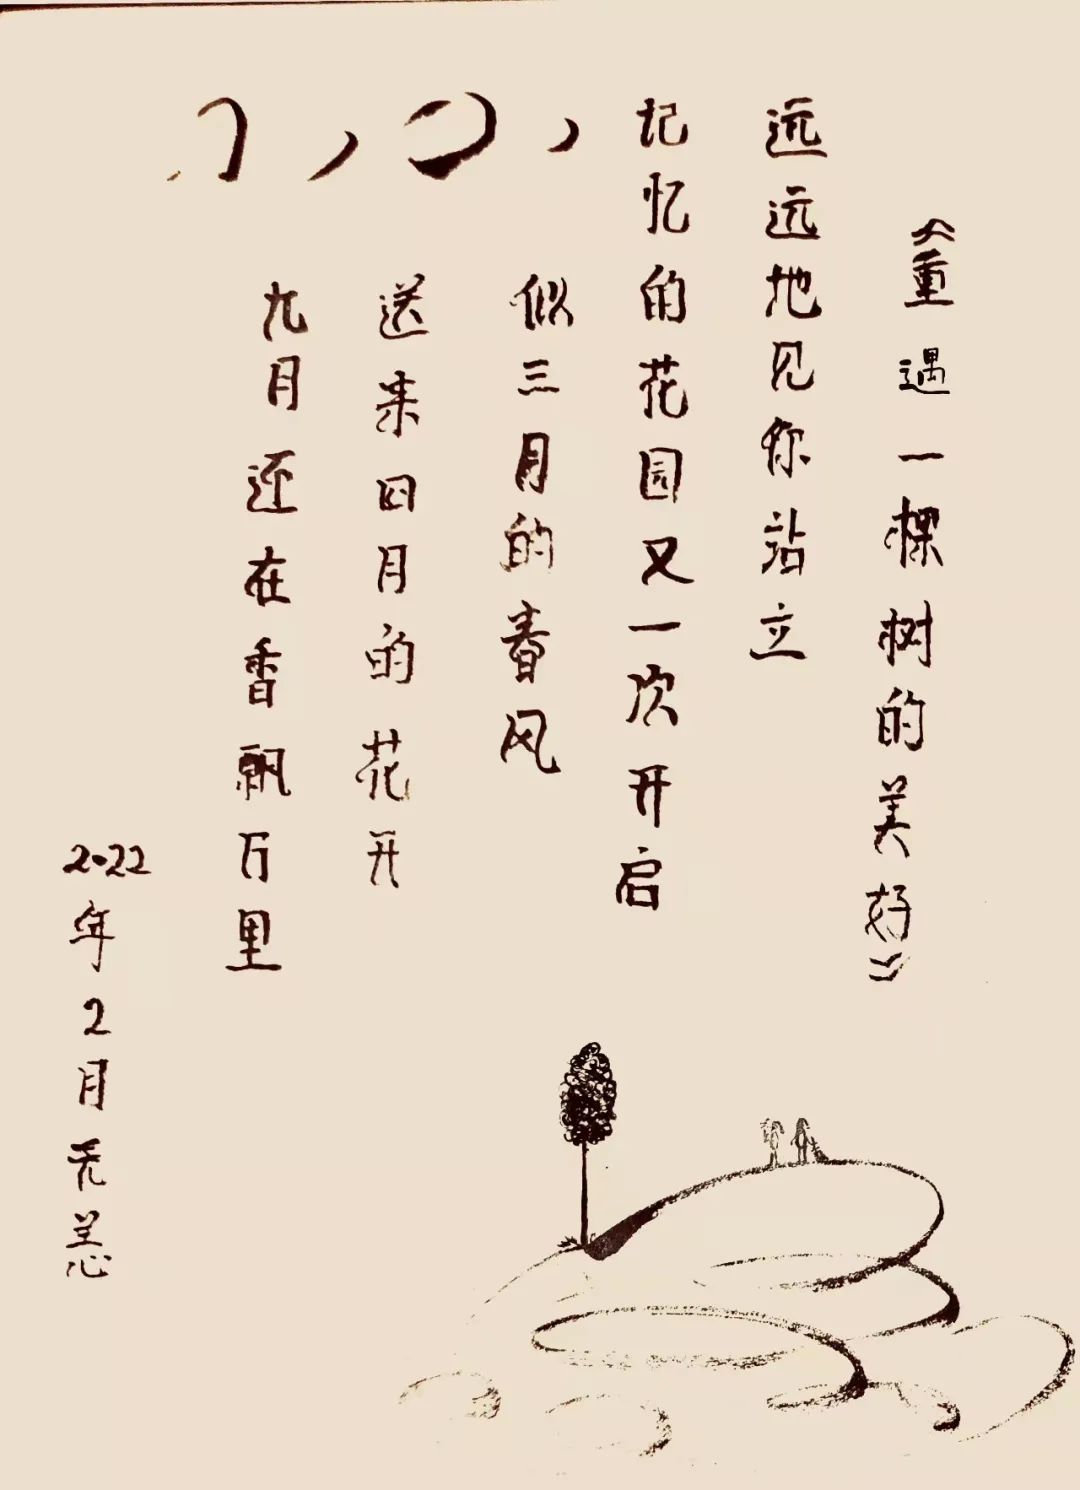 《重遇一棵树的美好》
远远地见你站立
记忆的花园又一次开启
似三月的春风
送来四月的花开
九月还在香飘万里
2022年2月无恙